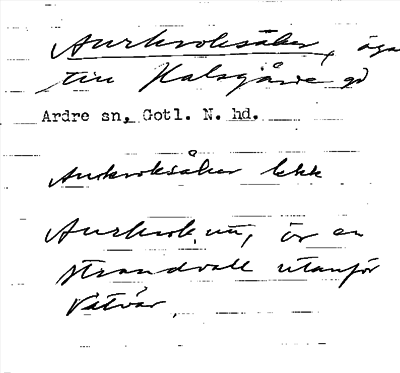 Aurkroksåker, äga
till Halsgårde gd
Ardre sn, Gotl. N. hd.
Aurkroksåker lkk
Aurkrok nn, är en
strandvall utanför
Vätvår.